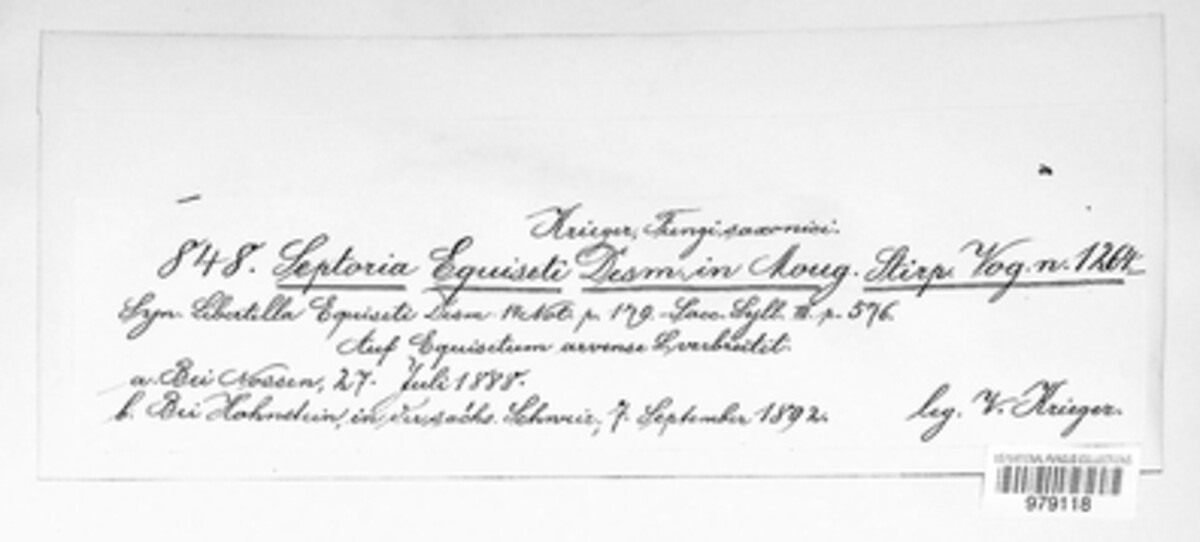 Krieger, Fungi saxonici.
848. Septoria Equiseti Desm. in Moug. Stirp. Vog. n. 1264
Syn. Libertella Equiseti Desm. 14 Not. p. 179. - Sacc. Syll. III. p. 576.
Auf Equisetum arvense L. verbreitet.
a. Bei Nossen, 27. Juli 1888.
b. Bei Hohnstein, in der sächs. Schweiz, 7. September 1892.
leg. W. Krieger.
US NATIONAL FUNGUS COLLECTIONS
979118